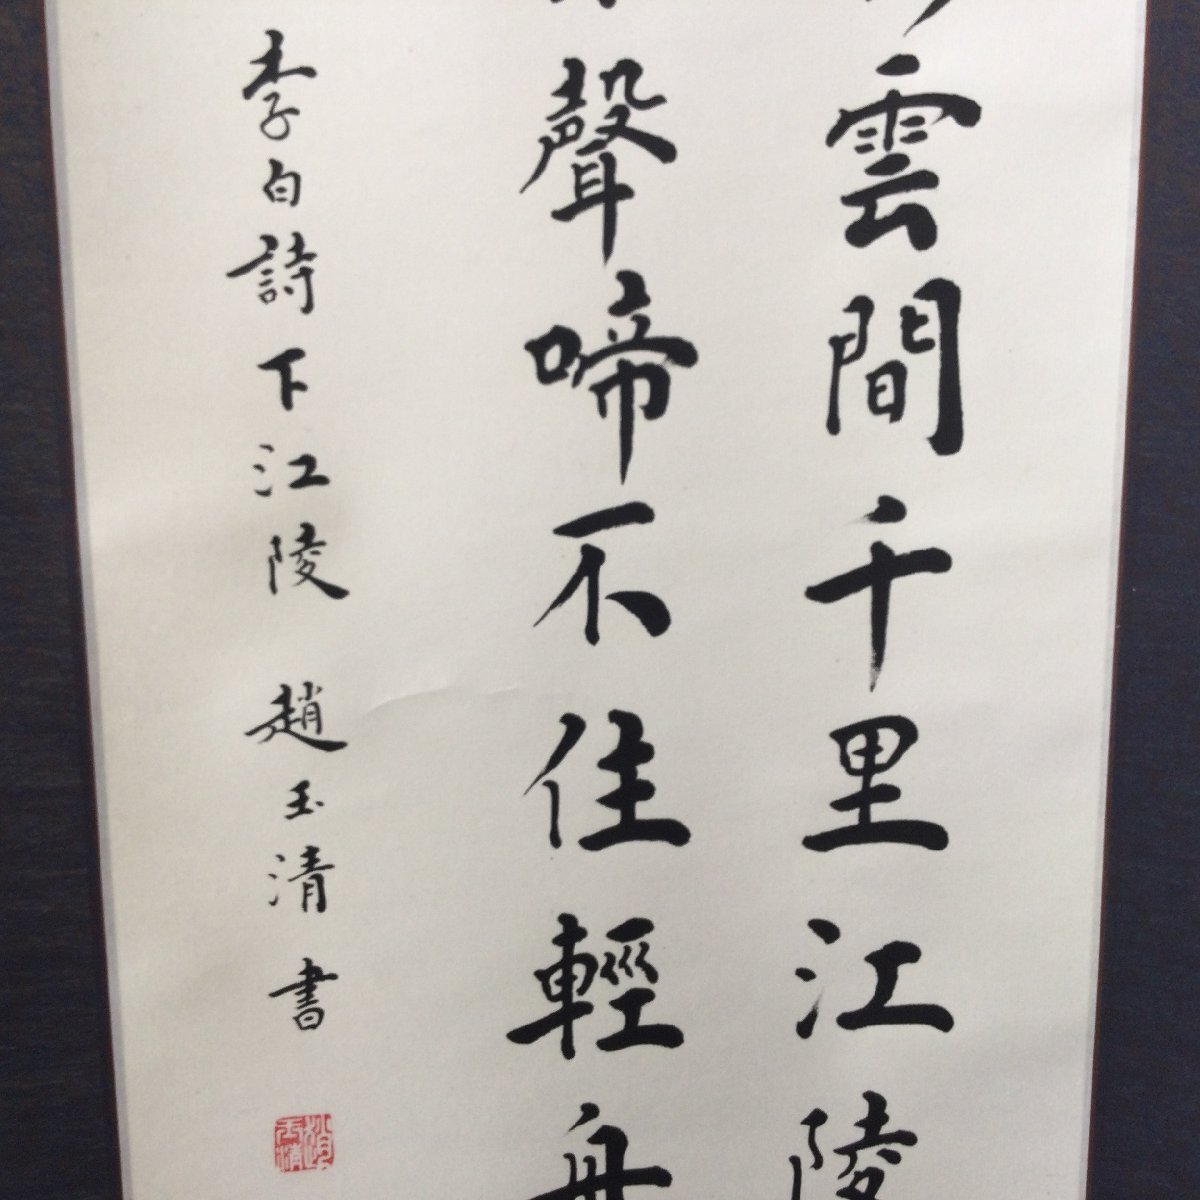 雲間千里江陵
聲啼不住輕舟
李白詩下江陵 趙玉清書
趙玉清